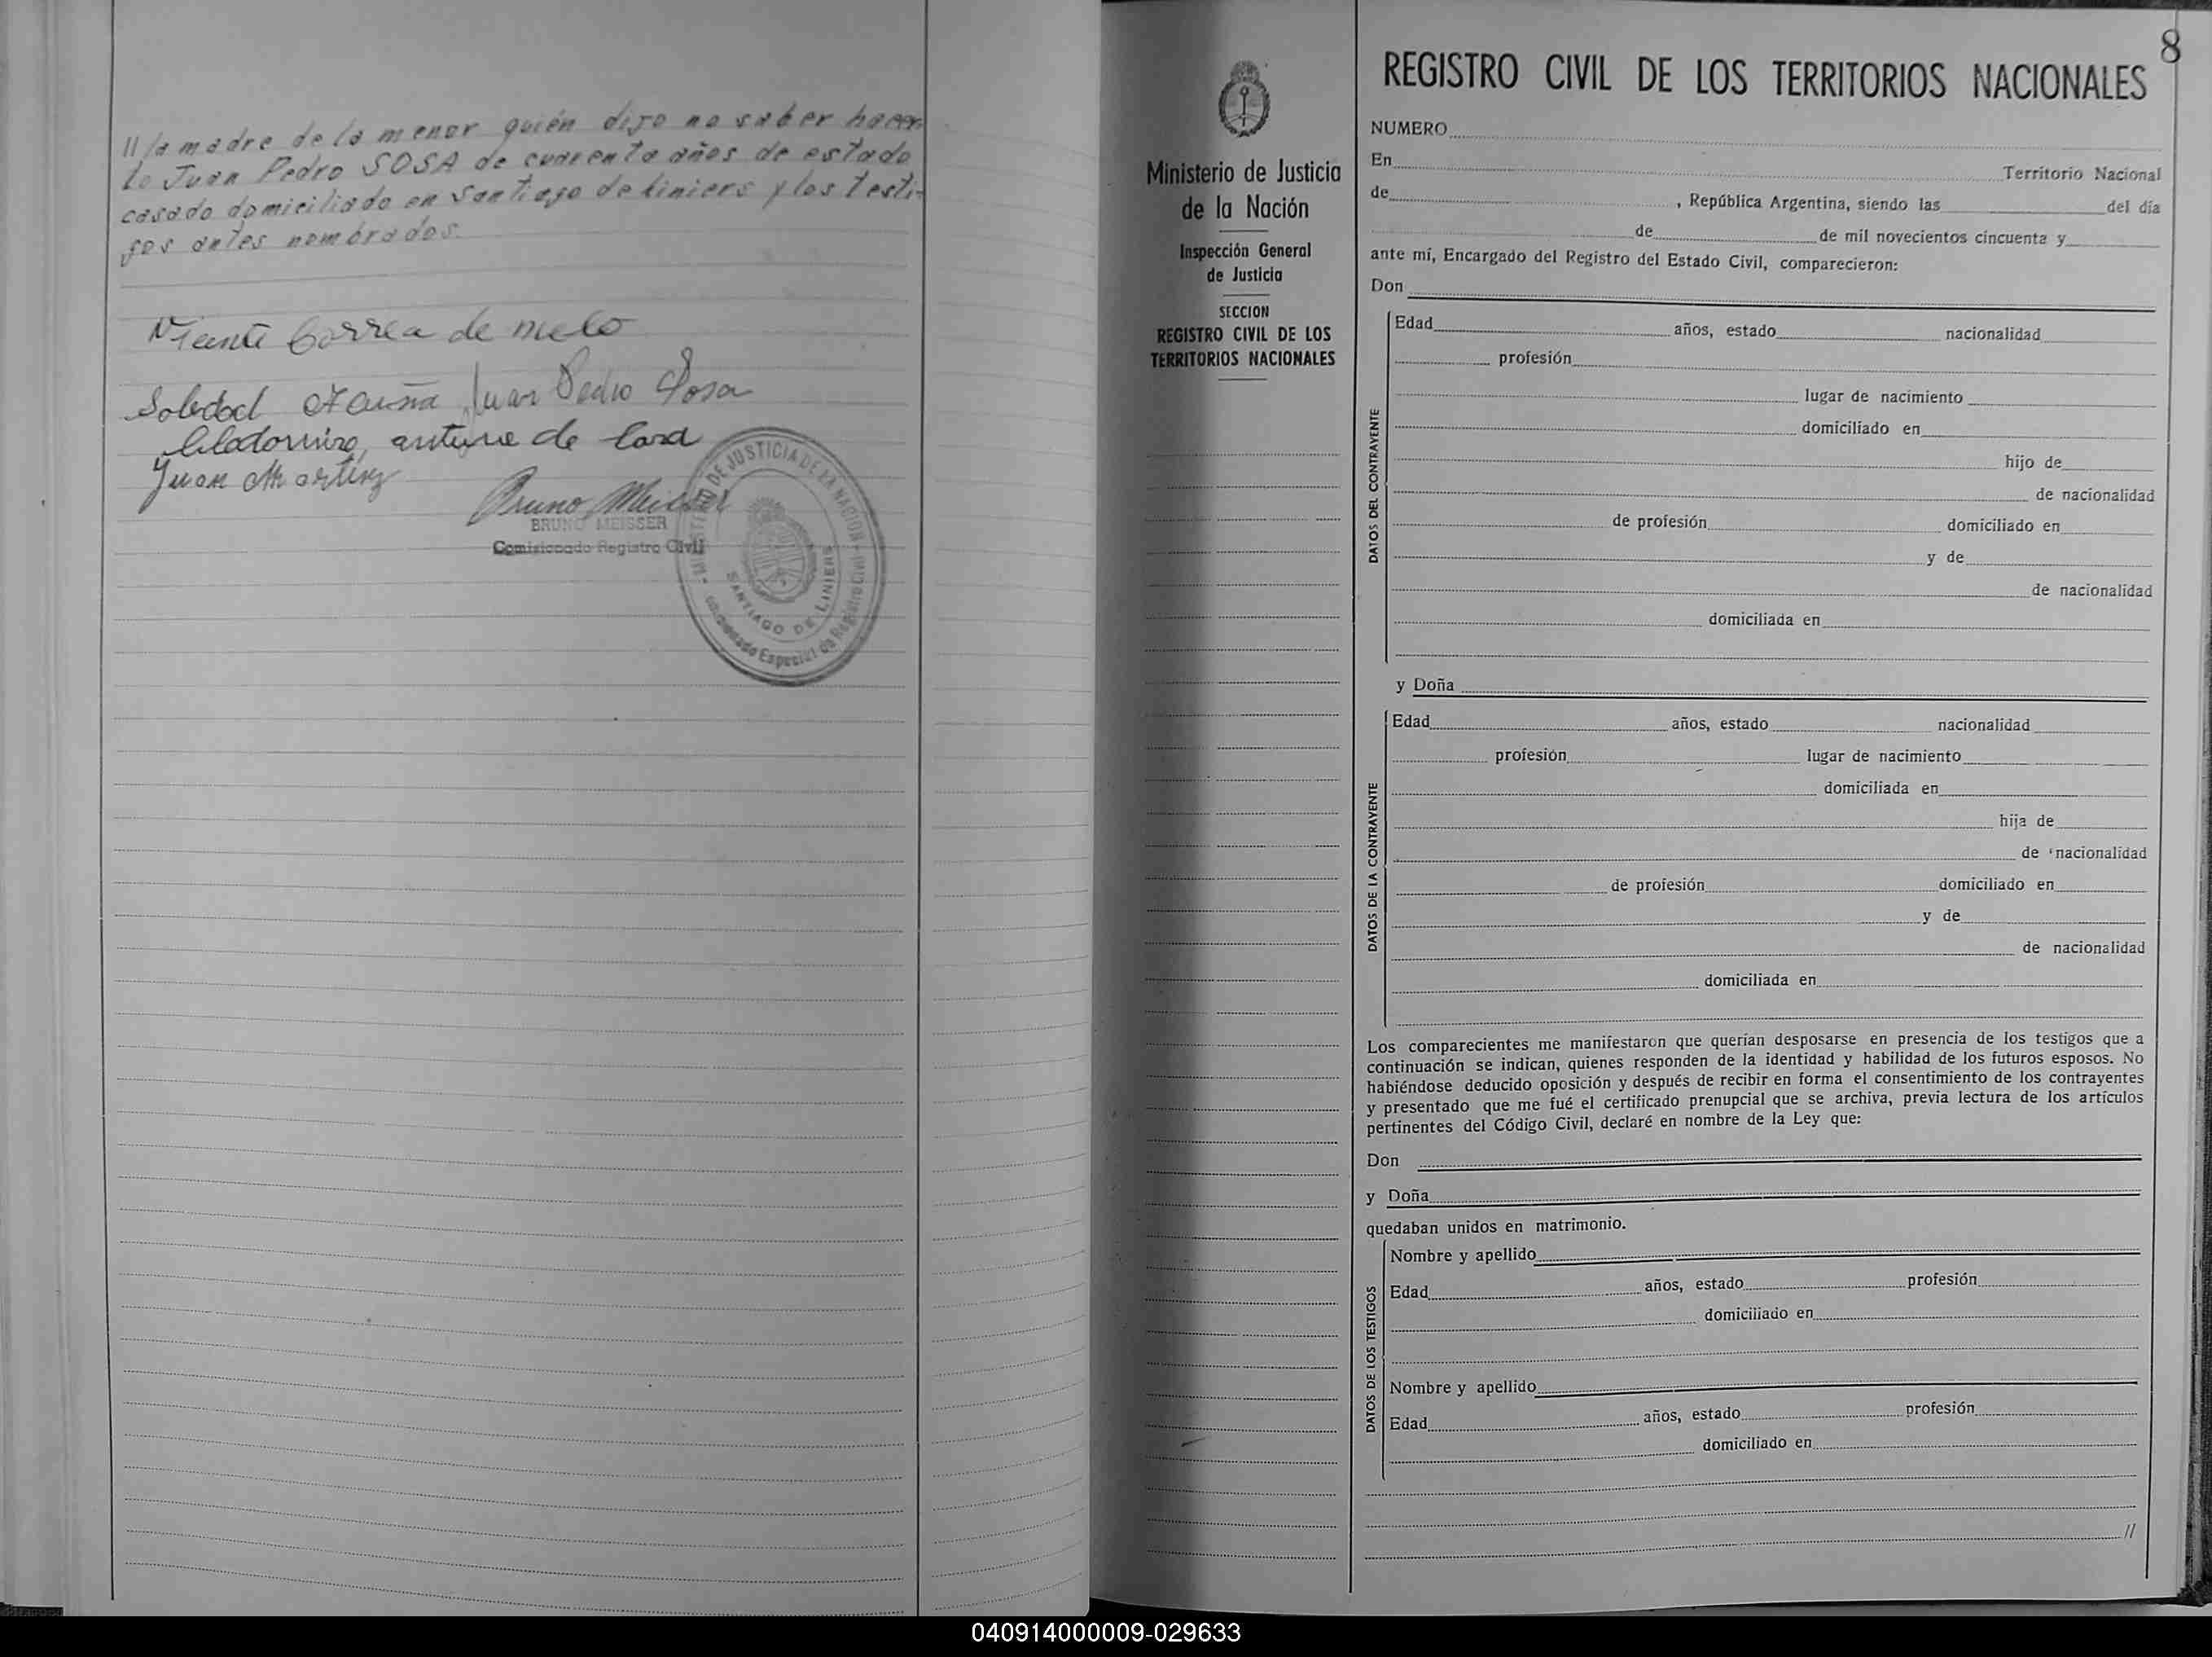 // la madre de la menor quién dijo no saber hacer-
lo Juan Pedro SOSA de cuarenta años de estado
casado domiciliado en Santiago de Liniers y los testi-
gos antes nombrados.
Correa de melo
Soledad Acuña Juan Pedro Sosa
Clodomiro antune de lara
Juan Martinz
Bruno Meisser
BRUNO MEISSER
Comisionado Registro Civil
MINISTERIO DE JUSTICIA DE LA NACION
SANTIAGO DE LINIERS
Comisionado Especial de Registro Civil
8
REGISTRO CIVIL DE LOS TERRITORIOS NACIONALES
Ministerio de Justicia
de la Nación
Inspección General
de Justicia
SECCION
REGISTRO CIVIL DE LOS
TERRITORIOS NACIONALES
NUMERO
En Territorio Nacional
de , República Argentina, siendo las del día
de de mil novecientos cincuenta y
ante mí, Encargado del Registro del Estado Civil, comparecieron:
Don
DATOS DEL CONTRAYENTE
Edad años, estado nacionalidad
profesión
lugar de nacimiento
domiciliado en
hijo de
de nacionalidad
de profesión domiciliado en
y de
de nacionalidad
domiciliada en
y Doña
DATOS DE LA CONTRAYENTE
Edad años, estado nacionalidad
profesión lugar de nacimiento
domiciliada en
hija de
de nacionalidad
de profesión domiciliado en
y de
de nacionalidad
domiciliada en
Los comparecientes me manifestaron que querían desposarse en presencia de los testigos que a
continuación se indican, quienes responden de la identidad y habilidad de los futuros esposos. No
habiéndose deducido oposición y después de recibir en forma el consentimiento de los contrayentes
y presentado que me fué el certificado prenupcial que se archiva, previa lectura de los artículos
pertinentes del Código Civil, declaré en nombre de la Ley que:
Don
y Doña
quedaban unidos en matrimonio.
DATOS DE LOS TESTIGOS
Nombre y apellido
Edad años, estado profesión
domiciliado en
Nombre y apellido
Edad años, estado profesión
domiciliado en
//
040914000009-029633